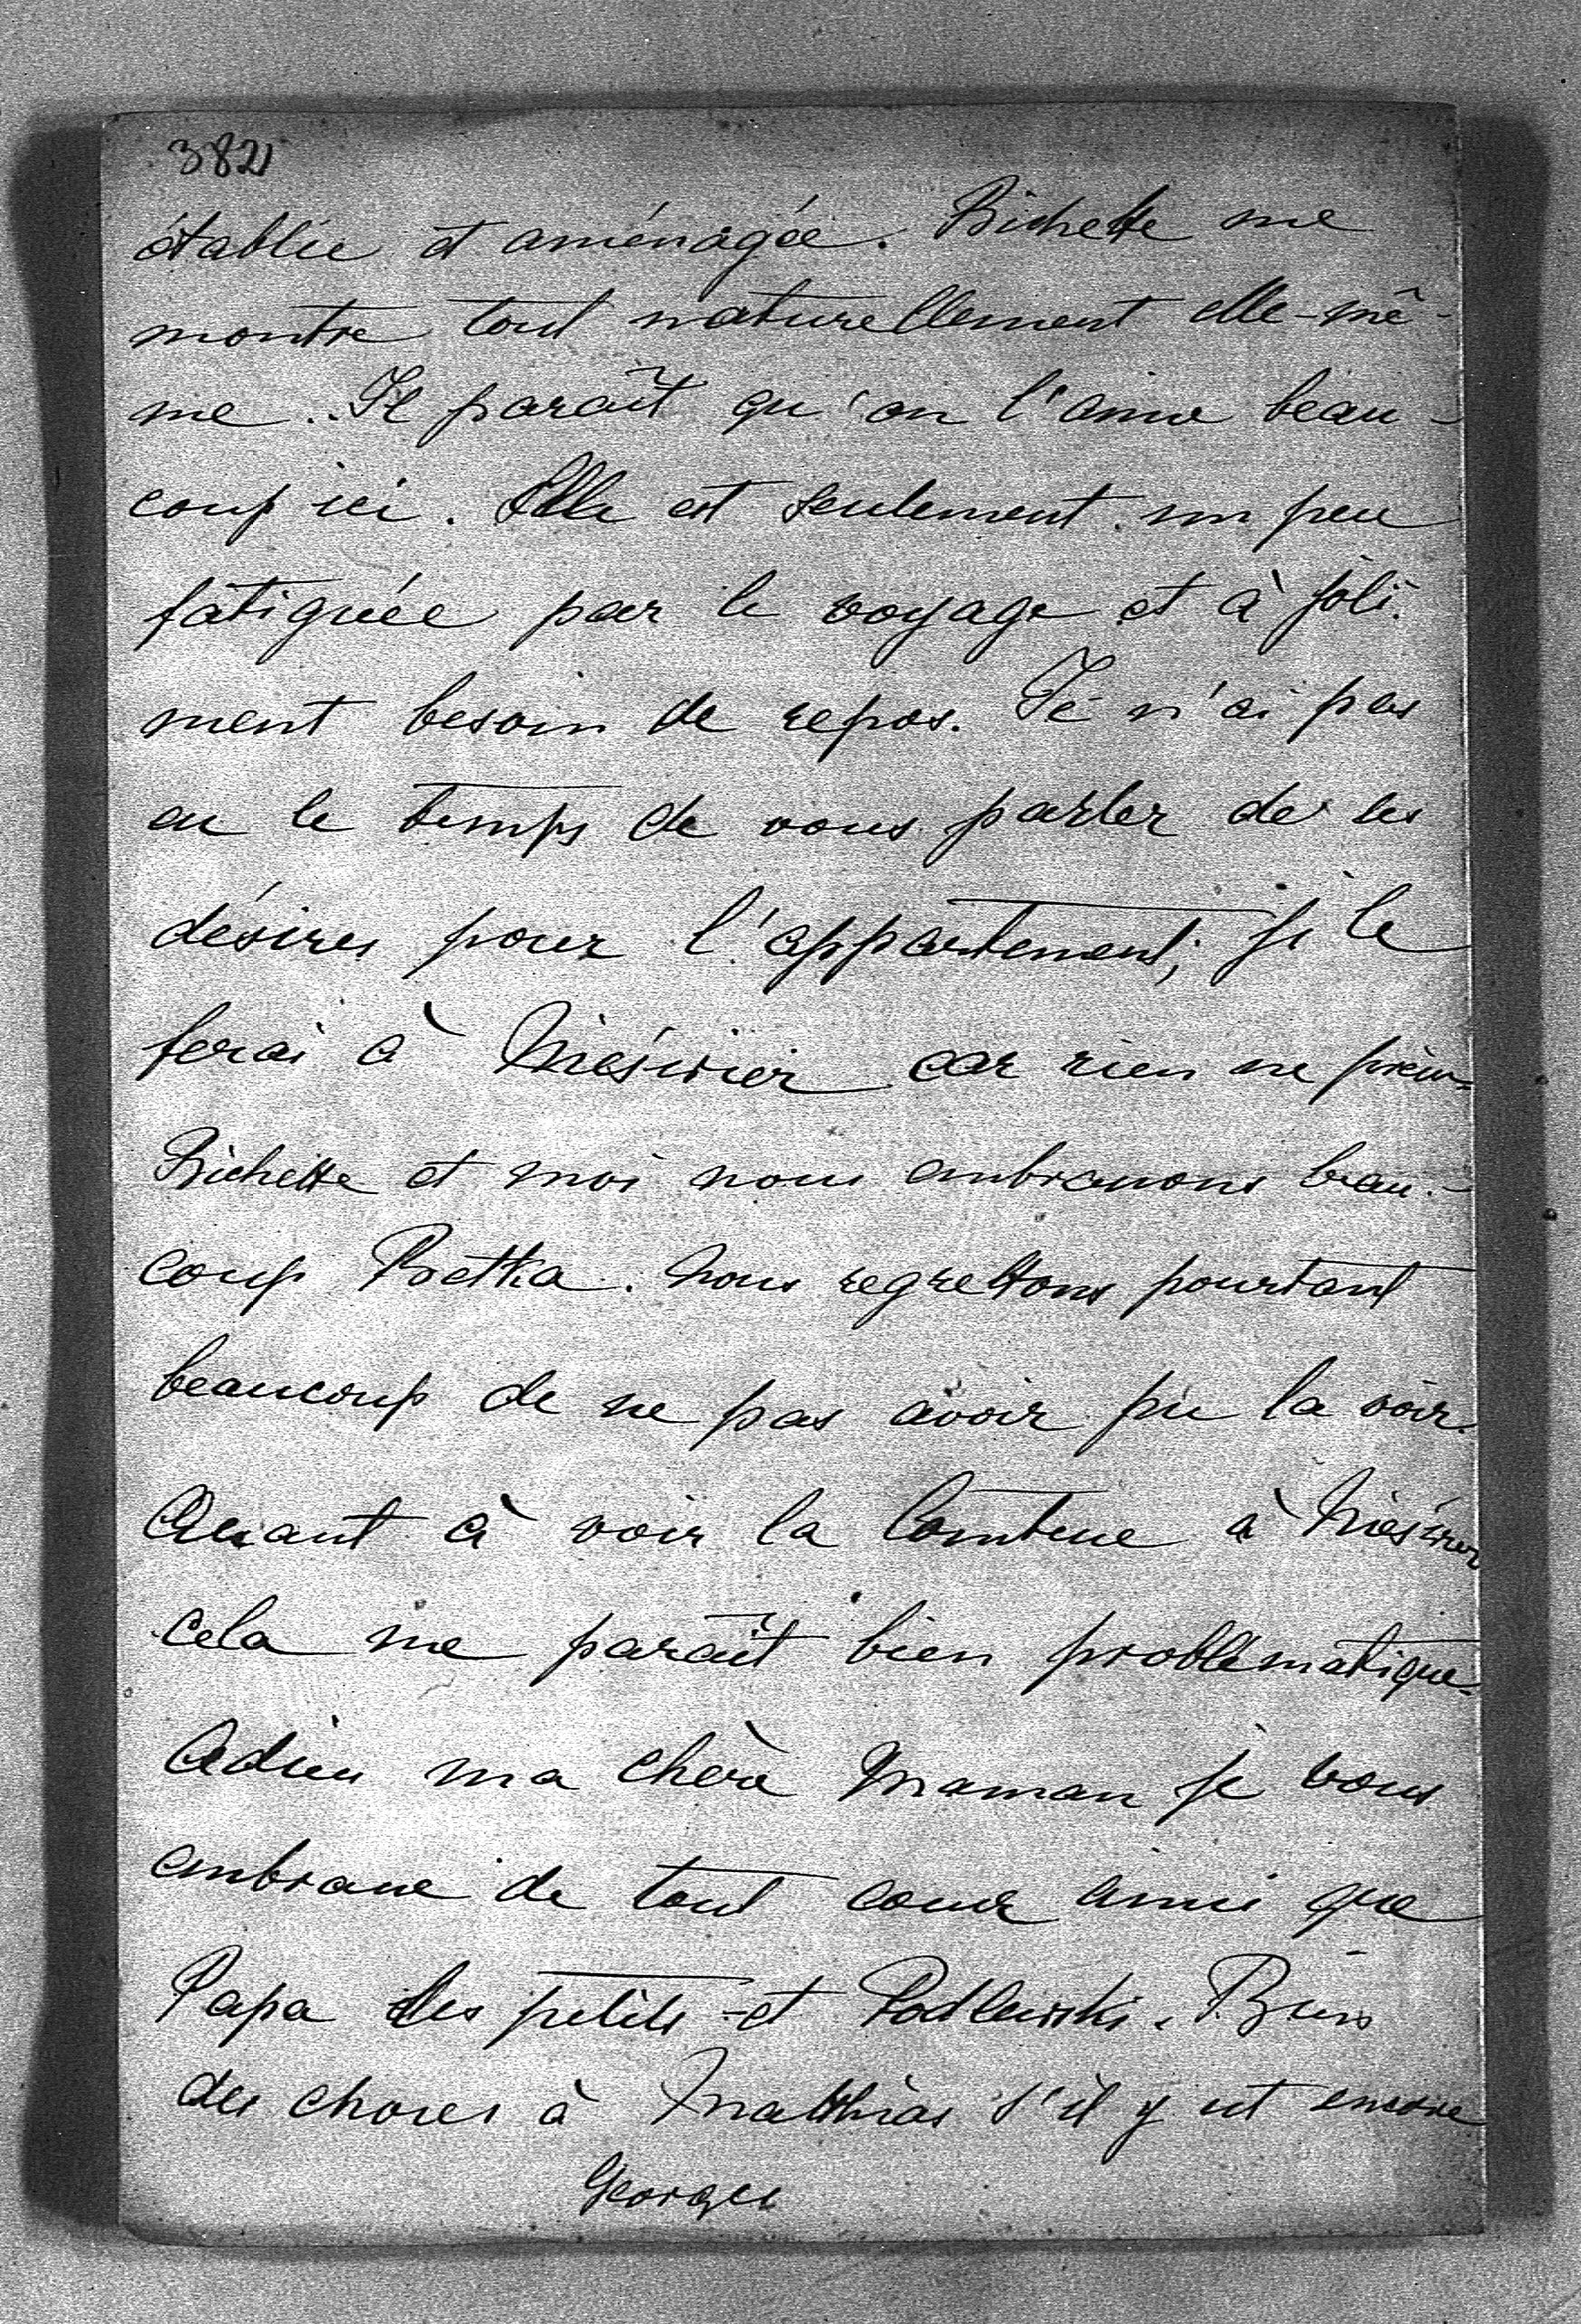 382
établie et aménagée. Bichette me
montre tout naturellement elle-mê-
me. Il paraît qu'on l'aime beau-
coup ici. Elle est seulement un peu
fatiguée par le voyage et à joli-
ment besoin de repos. Je n'ai pas
eu le temps de vous parler de ses
désires pour l'appartement; je le
ferai à Nieśwież car rien ne
Bichette et moi nous embrassons beau-
coup Pretka. Nous regrettons pourtant
beaucoup de ne pas avoir pu la voir.
Quant à voir la Comtesse à Nieśwież
cela me paraît bien problématique.
Adieu ma chère Maman je vous
embrasse de tout coeur ainsi que
Papa les petits et Podlewski. Bien
des choses à Matthias s'il y est encore
Georges